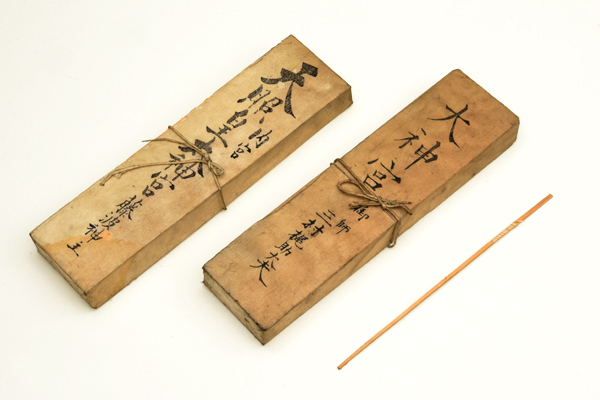 内宮
天照皇大神宮
藤波神主
大神宮
御師
三村梶助大夫